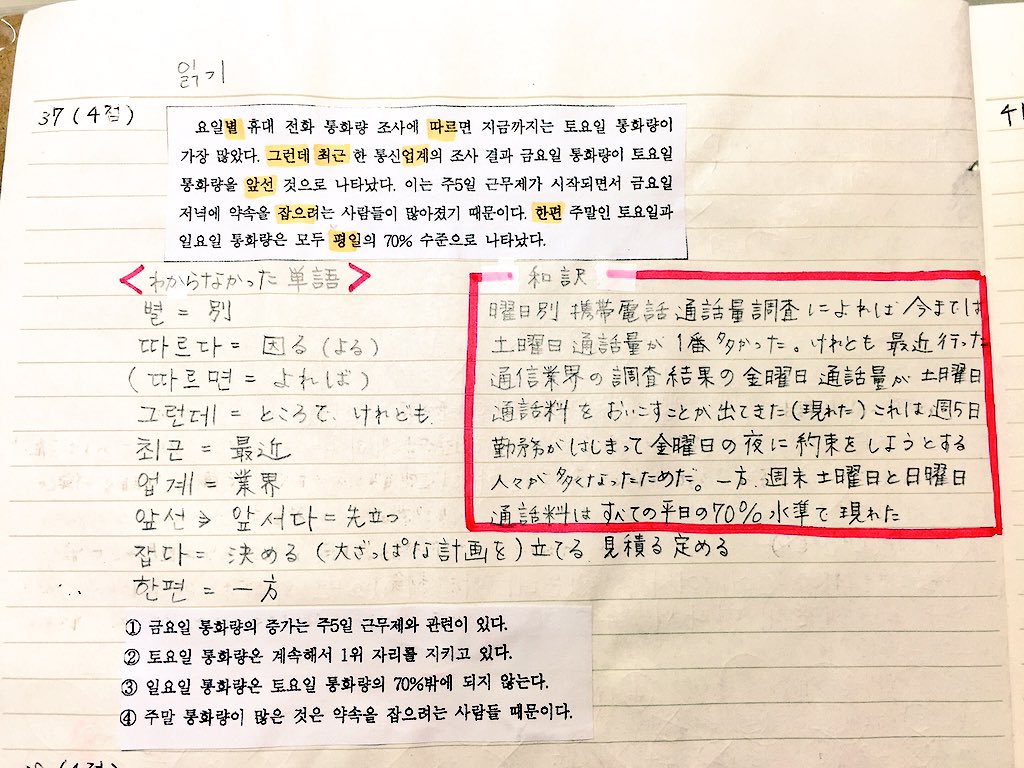 읽기
37 (4점)
41
요일별 휴대 전화 통화량 조사에 따르면 지금까지는 토요일 통화량이
가장 많았다. 그런데 최근 한 통신업계의 조사 결과 금요일 통화량이 토요일
통화량을 앞선 것으로 나타났다. 이는 주5일 근무제가 시작되면서 금요일
저녁에 약속을 잡으려는 사람들이 많아졌기 때문이다. 한편 주말인 토요일과
일요일 통화량은 모두 평일의 70% 수준으로 나타났다.
<わからなかった単語>
별 = 別
따르다 = 因る (よる)
(따르면 = よれば)
그런데 = ところで、けれども
최근 = 最近
업계 = 業界
앞선 → 앞서다 = 先立つ
잡다 = 決める (大ざっぱな計画を) 立てる 見積る 定める
한편 = 一方
和訳
曜日別 携帯電話 通話量調査によれば 今までは
土曜日 通話量が 1番多かった。けれども 最近行った
通信業界の調査結果の金曜日 通話量が 土曜日
通話料を おいこすことが出てきた(現れた) これは週5日
勤務がはじまって 金曜日の夜に約束をしようとする
人々が多くなったためだ。一方、週末土曜日と日曜日
通話料は すべての平日の70%水準で現れた
① 금요일 통화량의 증가는 주5일 근무제와 관련이 있다.
② 토요일 통화량은 계속해서 1위 자리를 지키고 있다.
③ 일요일 통화량은 토요일 통화량의 70%밖에 되지 않는다.
④ 주말 통화량이 많은 것은 약속을 잡으려는 사람들 때문이다.